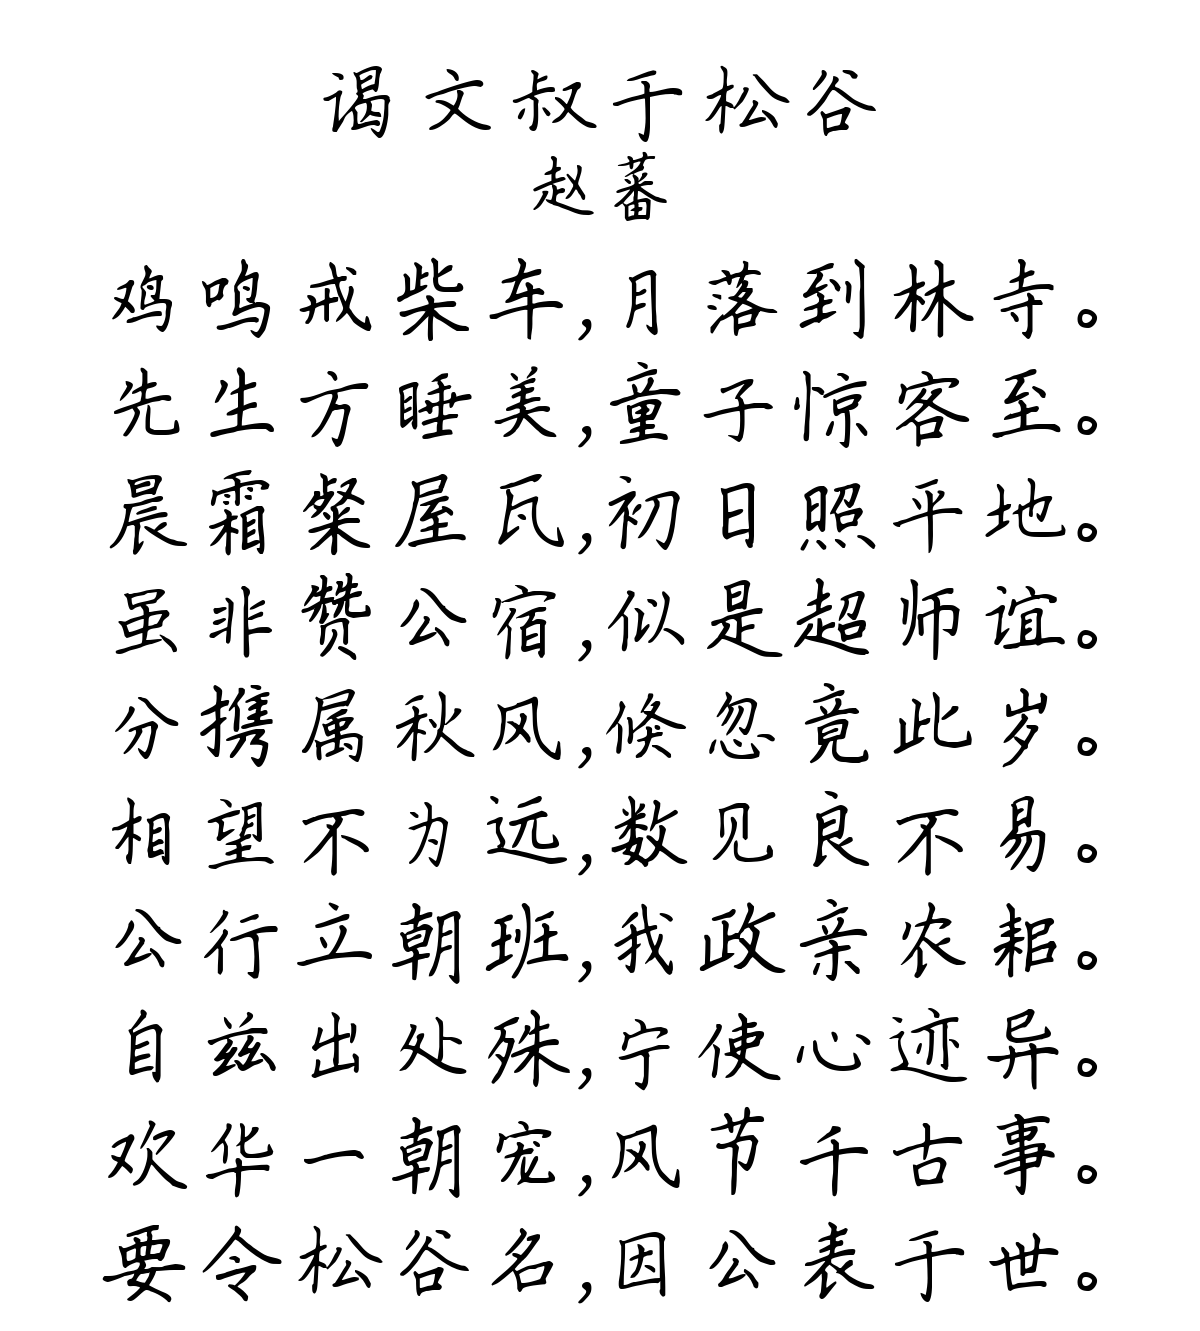 谒文叔于松谷
赵蕃
鸡鸣戒柴车,月落到林寺。
先生方睡美,童子惊客至。
晨霜粲屋瓦,初日照平地。
虽非赞公宿,似是超师谊。
分携属秋风,倏忽竟此岁。
相望不为远,数见良不易。
公行立朝班,我政亲农耜。
自兹出处殊,宁使心迹异。
欢华一朝宠,风节千古事。
要令松谷名,因公表于世。